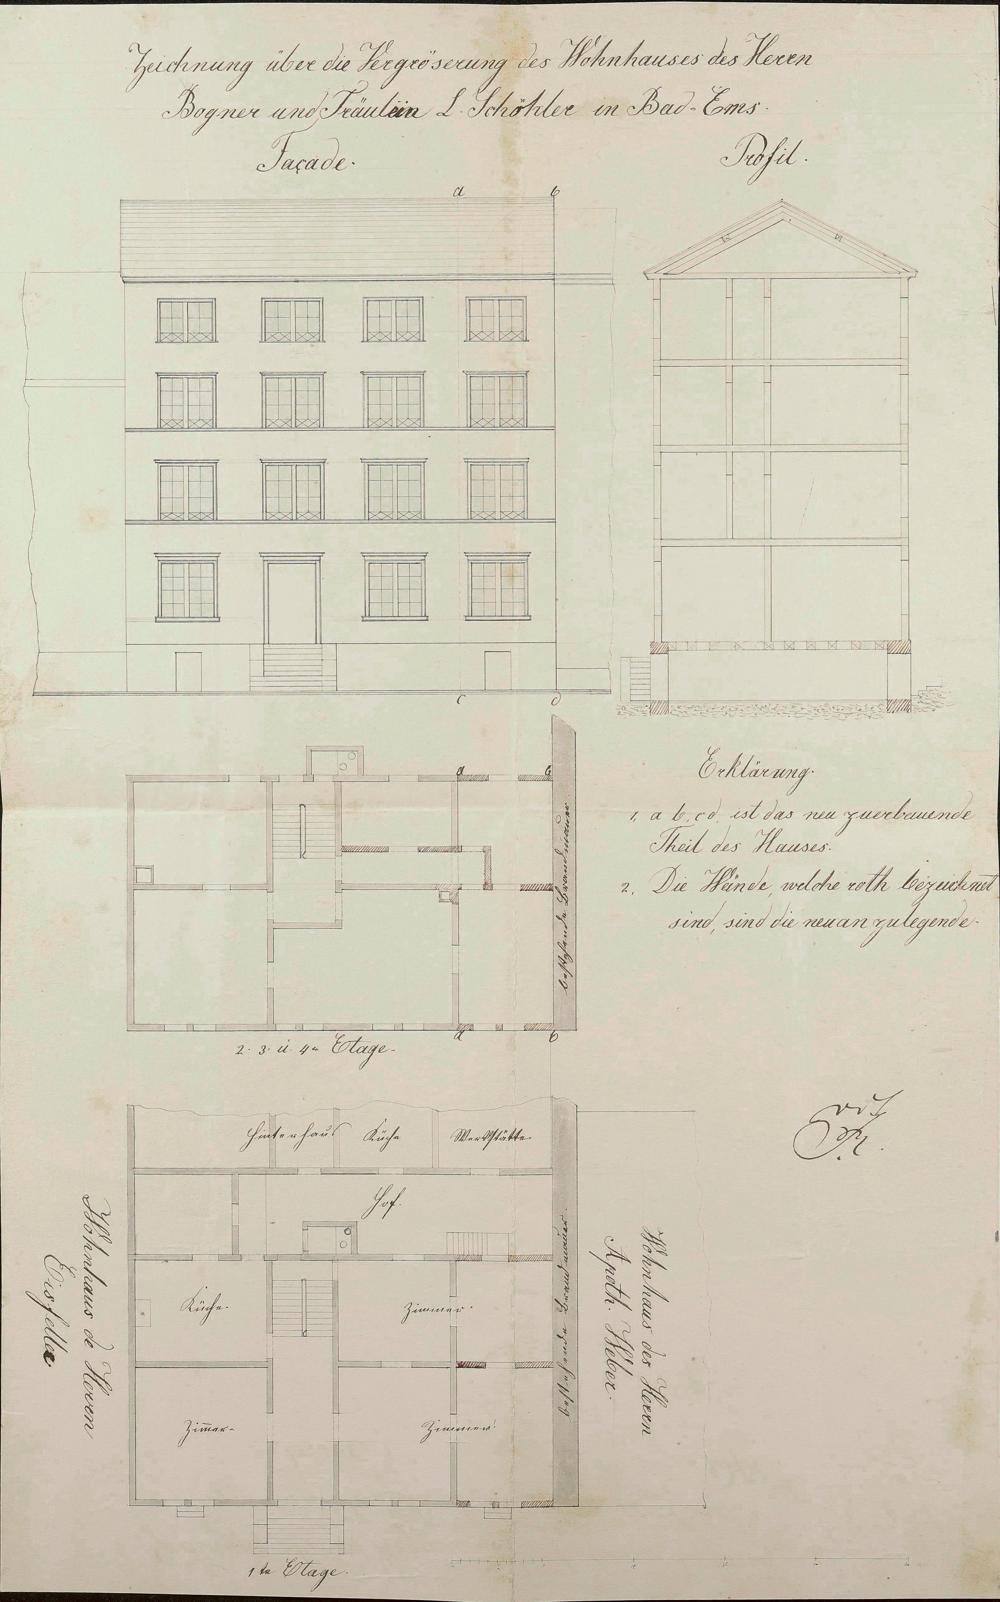 Zeichnung über die Vergröserung des Wohnhauses des Herrn
Bogner und Fräulein L. Schöhler in Bad-Ems.
Façade.
Profil.
a b
c d
a b
bestehende Brandmauer
a b
2. 3. u. 4te Etage.
Erklärung.
1, a b, c d, ist das neu zuerbauende
Theil des Hauses.
2, Die Wände, welche roth bezeichnet
sind, sind die neuan zulegende.
Hinterhaus Küche Werkstätte
Hof.
Küche. Zimmer.
Zimmer. Zimmer.
bestehende Brandmauer
Wohnhaus de Herrn
Eisfeller
Wohnhaus des Herrn
Apoth. Weber.
1te Etage.